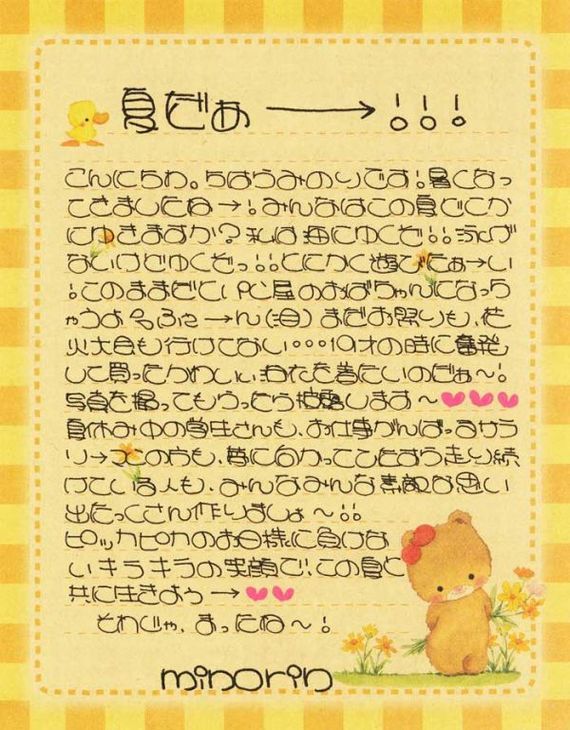 夏だぁ→!!!
こんにちわ。ちはらみのりです!暑くなっ
てきましたね→!みんなはこの夏どこか
にゆきますか?私は海にゆくぞ!!泳げ
ないけどゆくぞっ!!とにかく遊びたぁ→い
!このままだと、PC屋のおばちゃんになっち
ゃうよぉふぇ→ん(泪)まだお祭りも、花
火大会も行けてない…19才の時に奮発
して買ったかわいいゆかたを着たいのだぁ〜!
写真を撮ってもらったら披露します〜
夏休み中の学生さんも、お仕事がんばってるサラ
リ→マンの方も、夢に向かってひたすら走り続
けている人も、みんなみんな素敵な思い
出たっくさん作りましょ〜!!
ピッカピカのお日様に負けな
いキラキラの笑顔で、この夏を
共に生きよう→
それじゃ、まったね〜!
minorin